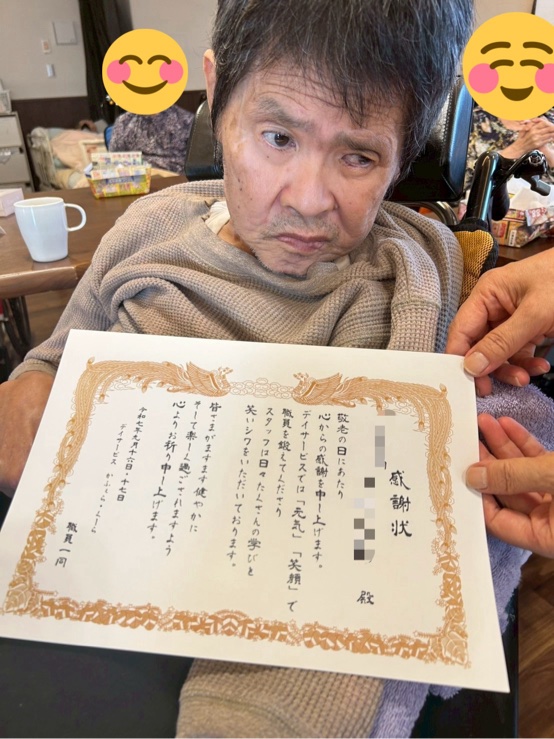 感謝状
殿
敬老の日にあたり
心からの感謝を申し上げます。
デイサービスでは「元気」「笑顔」で
職員を鍛えてくださり
スタッフは日々たくさんの学びと
笑いジワをいただいております。
皆さまがますます健やかに
そして楽しく過ごされますよう
心よりお祈り申し上げます。
令和七年九月十六日・十七日
デイサービス
職員一同